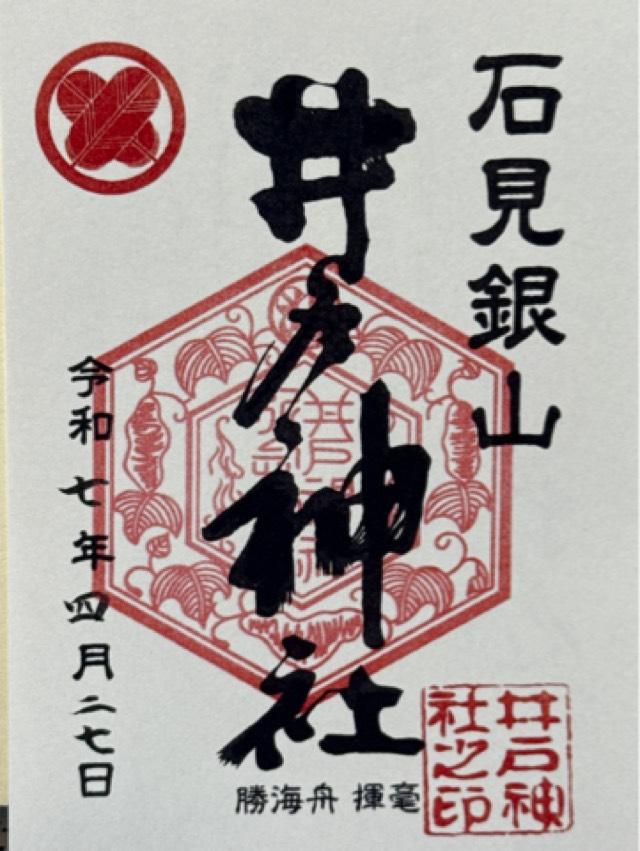 石見銀山
井戸神社
勝海舟 揮毫
令和七年四月二七日
井戸神
社之印